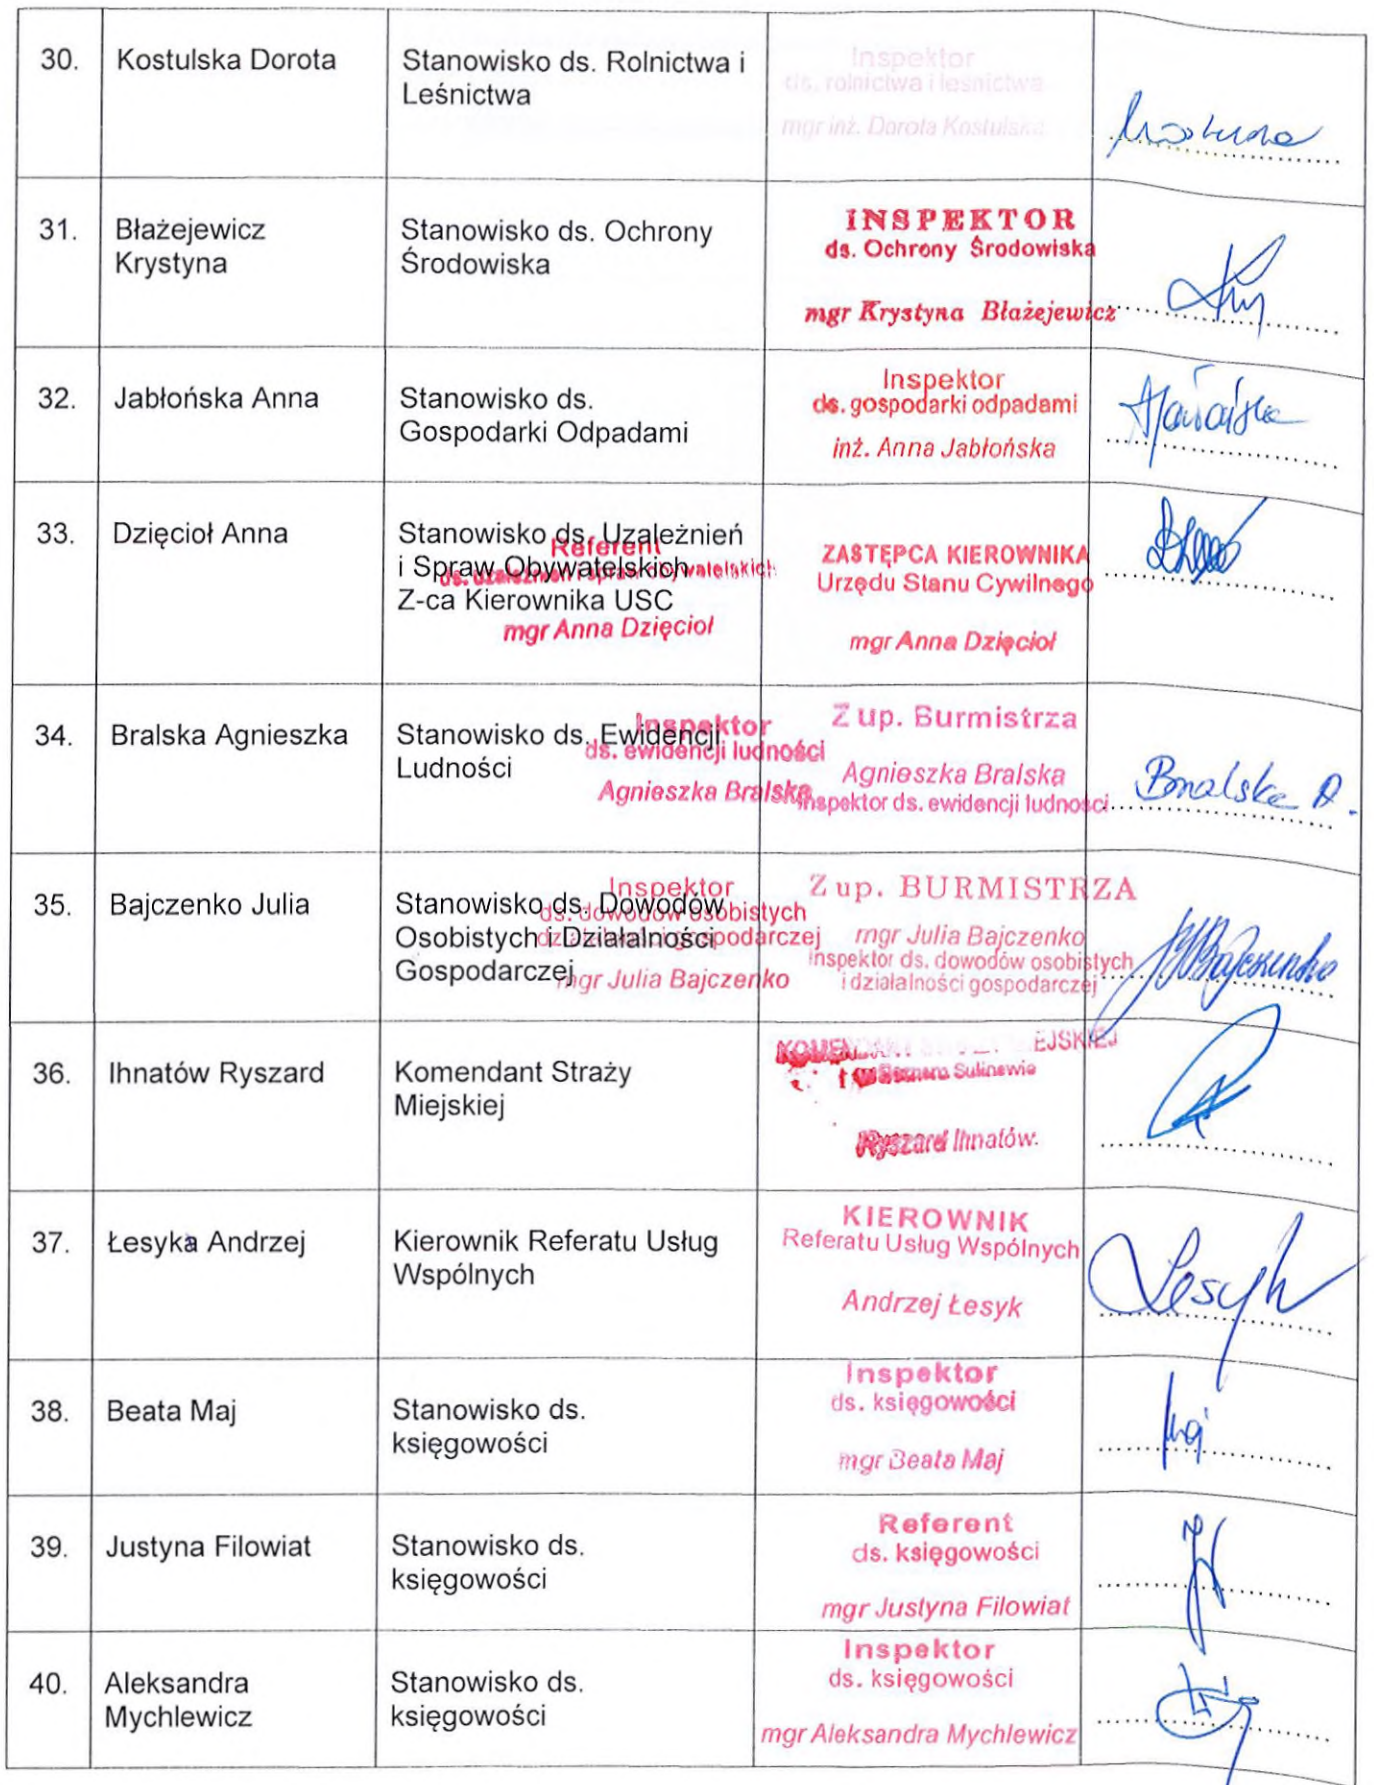 30.
Kostulska Dorota
Stanowisko ds. Rolnictwa i
Leśnictwa
Inspektor
ds. rolnictwa i leśnictwa
mgr inż. Dorota Kostulska
31.
Błażejewicz
Krystyna
Stanowisko ds. Ochrony
Środowiska
INSPEKTOR
ds. Ochrony Środowiska
mgr Krystyna Błażejewicz
32.
Jabłońska Anna
Stanowisko ds.
Gospodarki Odpadami
Inspektor
ds. gospodarki odpadami
inż. Anna Jabłońska
33.
Dzięcioł Anna
Stanowisko ds. Uzależnień
i Spraw Obywatelskich
Z-ca Kierownika USC
Referent
ds. uzależnień i spraw obywatelskich
mgr Anna Dzięcioł
ZASTĘPCA KIEROWNIKA
Urzędu Stanu Cywilnego
mgr Anna Dzięcioł
34.
Bralska Agnieszka
Stanowisko ds. Ewidencji
Ludności
Inspektor
ds. ewidencji ludności
Agnieszka Bralska
Z up. Burmistrza
Agnieszka Bralska
inspektor ds. ewidencji ludności
Bralska A.
35.
Bajczenko Julia
Stanowisko ds. Dowodów
Osobistych i Działalności
Gospodarczej
Inspektor
ds. dowodów osobistych
działalności gospodarczej
mgr Julia Bajczenko
Z up. BURMISTRZA
mgr Julia Bajczenko
inspektor ds. dowodów osobistych
i działalności gospodarczej
Bajczenko
36.
Ihnatów Ryszard
Komendant Straży
Miejskiej
KOMENDANT EJSKIEJ
Sulinowie
Ryszard Ihnatów.
37.
Łesyka Andrzej
Kierownik Referatu Usług
Wspólnych
KIEROWNIK
Referatu Usług Wspólnych
Andrzej Łesyk
Łesyk
38.
Beata Maj
Stanowisko ds.
księgowości
Inspektor
ds. księgowości
mgr Beata Maj
Maj
39.
Justyna Filowiat
Stanowisko ds.
księgowości
Referent
ds. księgowości
mgr Justyna Filowiat
40.
Aleksandra
Mychlewicz
Stanowisko ds.
księgowości
Inspektor
ds. księgowości
mgr Aleksandra Mychlewicz